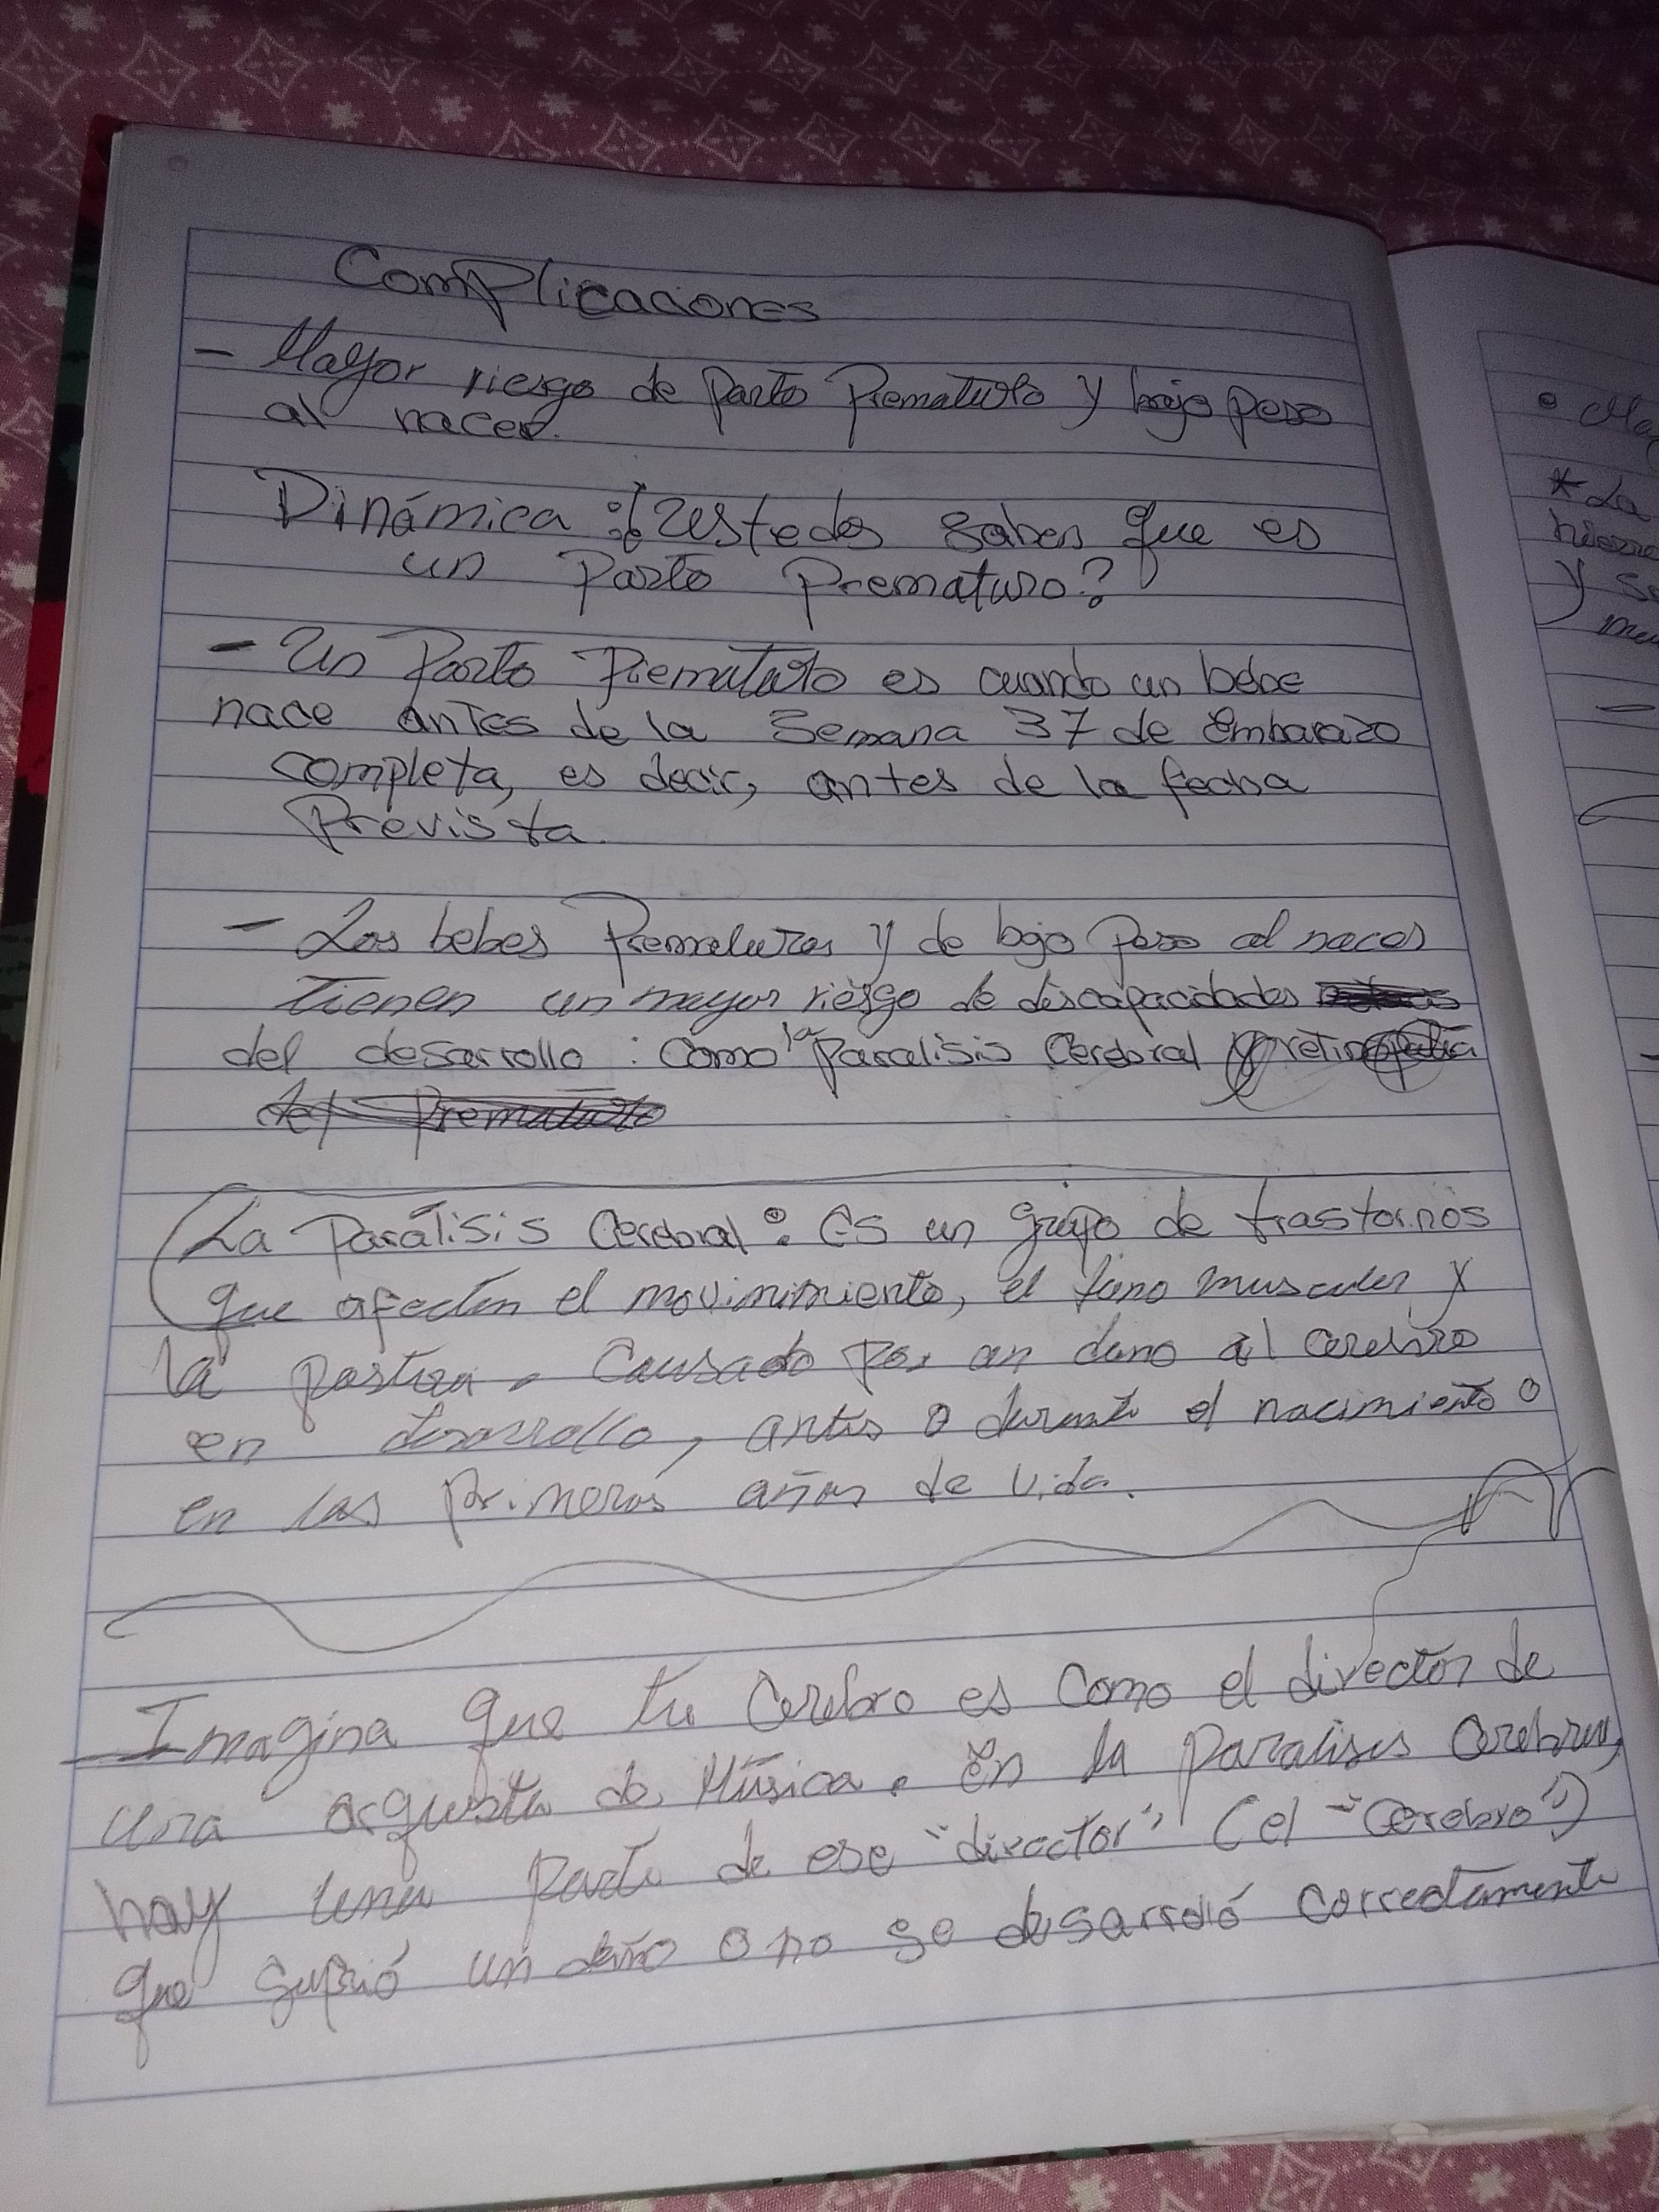 Complicaciones
- Mayor riesgo de Parto Prematuro y bajo peso
al nacer.
Dinámica : ¿Ustedes saben que es
un Parto Prematuro?
- Un Parto Prematuro es cuando un bebe
nace antes de la Semana 37 de embarazo
completa, es decir, antes de la fecha
Prevista.
- Los bebes Prematuros y de bajo Peso al nacer
tienen un mayor riesgo de discapacidades
del desarrollo : como la Paralisis Cerebral y retinopatia
del Prematuro
La Parálisis Cerebral : Es un grupo de trastornos
que afectan el movinimiento, el tono muscular y
la postura. Causado por un dano al cerebro
en desarrollo, antes o durante el nacimiento o
en los primeros años de vida.
- Imagina que tu Cerebro es como el director de
una orquesta de Música. En la paralisis Cerebral,
hay una parte de ese "director" (el "Cerebro")
que sufrió un daño o no se desarroló correctamente
• May
* La
hierro
y se